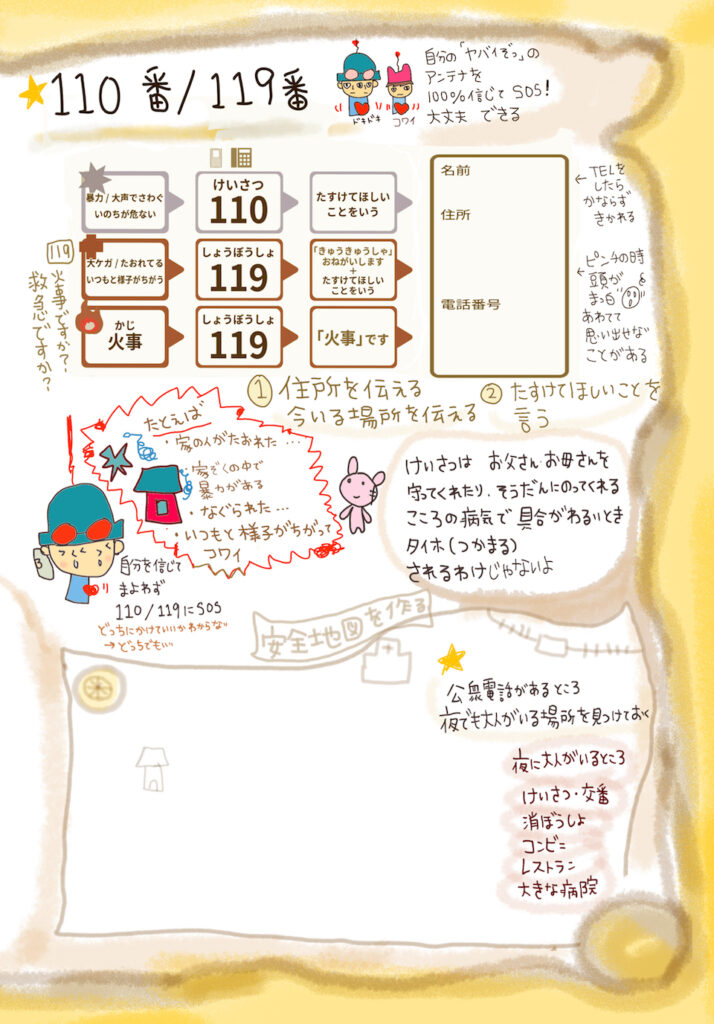 110番/119番
自分の「ヤバイぞっ」の
アンテナを
100%信じてSOS!
大丈夫 できる
ドキドキ
コワイ
暴力/大声でさわぐ
いのちが危ない
けいさつ
110
たすけてほしい
ことをいう
119
火事ですか?
救急ですか?
大ケガ/たおれてる
いつもと様子がちがう
しょうぼうしょ
119
「きゅうきゅうしゃ」
おねがいします
+
たすけてほしい
ことをいう
かじ
火事
しょうぼうしょ
119
「火事」です
名前
住所
電話番号
←TELを
したら
かならず
きかれる
←ピンチの時
頭が
まっ白
あわてて
思い出せない
ことがある
① 住所を伝える
今いる場所を伝える
② たすけてほしいことを
言う
たとえば
・家の人がたおれた…
・家ぞくの中で
暴力がある
・なぐられた…
・いつもと様子がちがって
コワイ
自分を信じて
まよわず
110/119にSOS
どっちにかけていいかわからない
→どっちでもいい
けいさつは お父さん.お母さんを
守ってくれたり.そうだんにのってくれる
こころの病気で具合がわるいとき
タイホ(つかまる)
されるわけじゃないよ
安全地図を作る
公衆電話があるところ
夜でも大人がいる場所を見つけておく
夜に大人がいるところ
けいさつ・交番
消ぼうしょ
コンビニ
レストラン
大きな病院